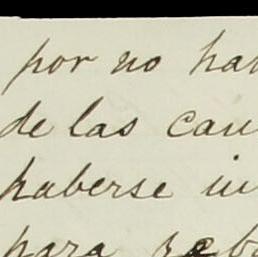 por no ha
de las cau
haberse in
para reb